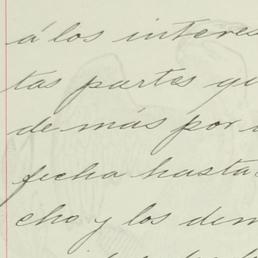 á los interes
tas partes qu
de más por
fecha hasta
cho y los dem